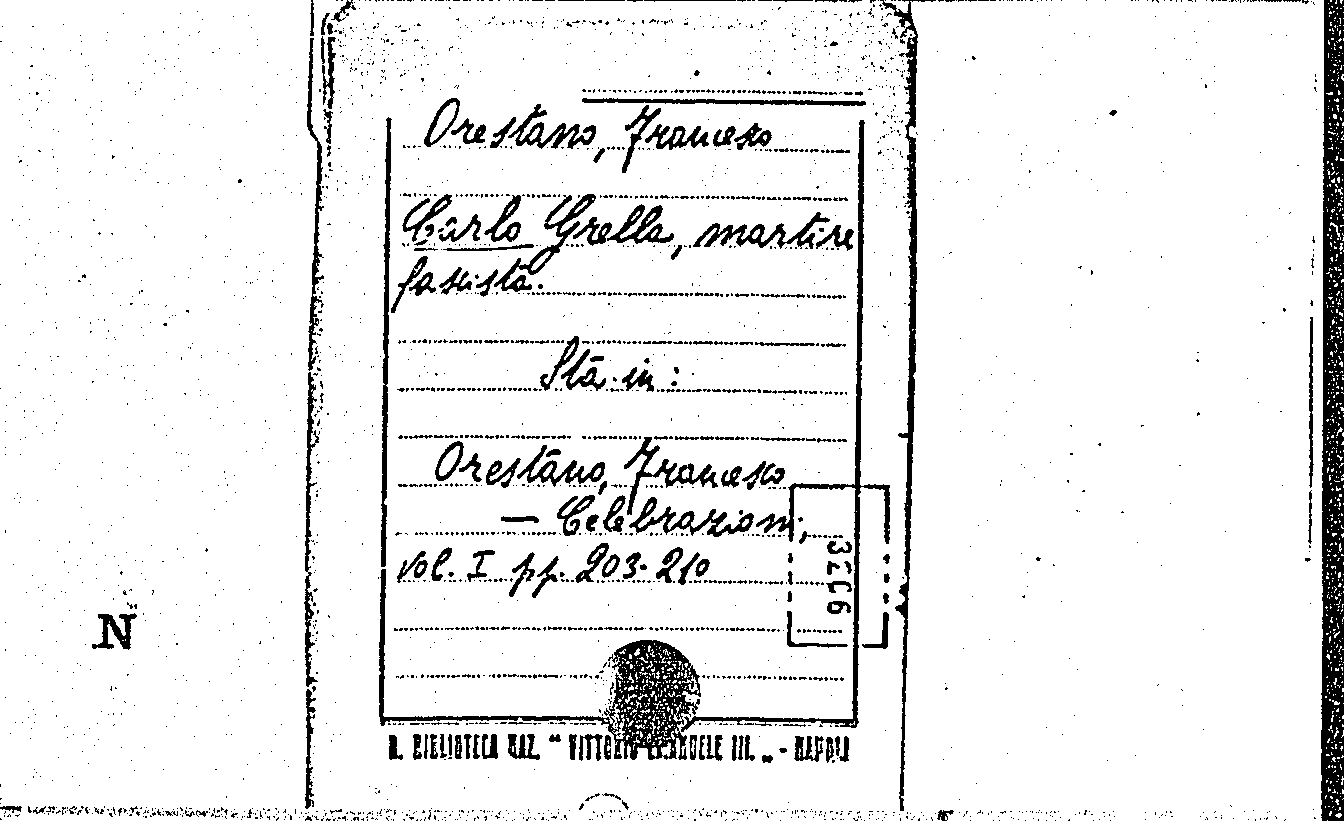 Orestano, Francesco
Carlo Grella, martire
fascista.
Sta in:
Orestano, Francesco
— Celebrazioni,
vol. I pp. 203-210
3206
N
R. BIBLIOTECA NAZ. “ VITTORIO EMANUELE III. „ - NAPOLI